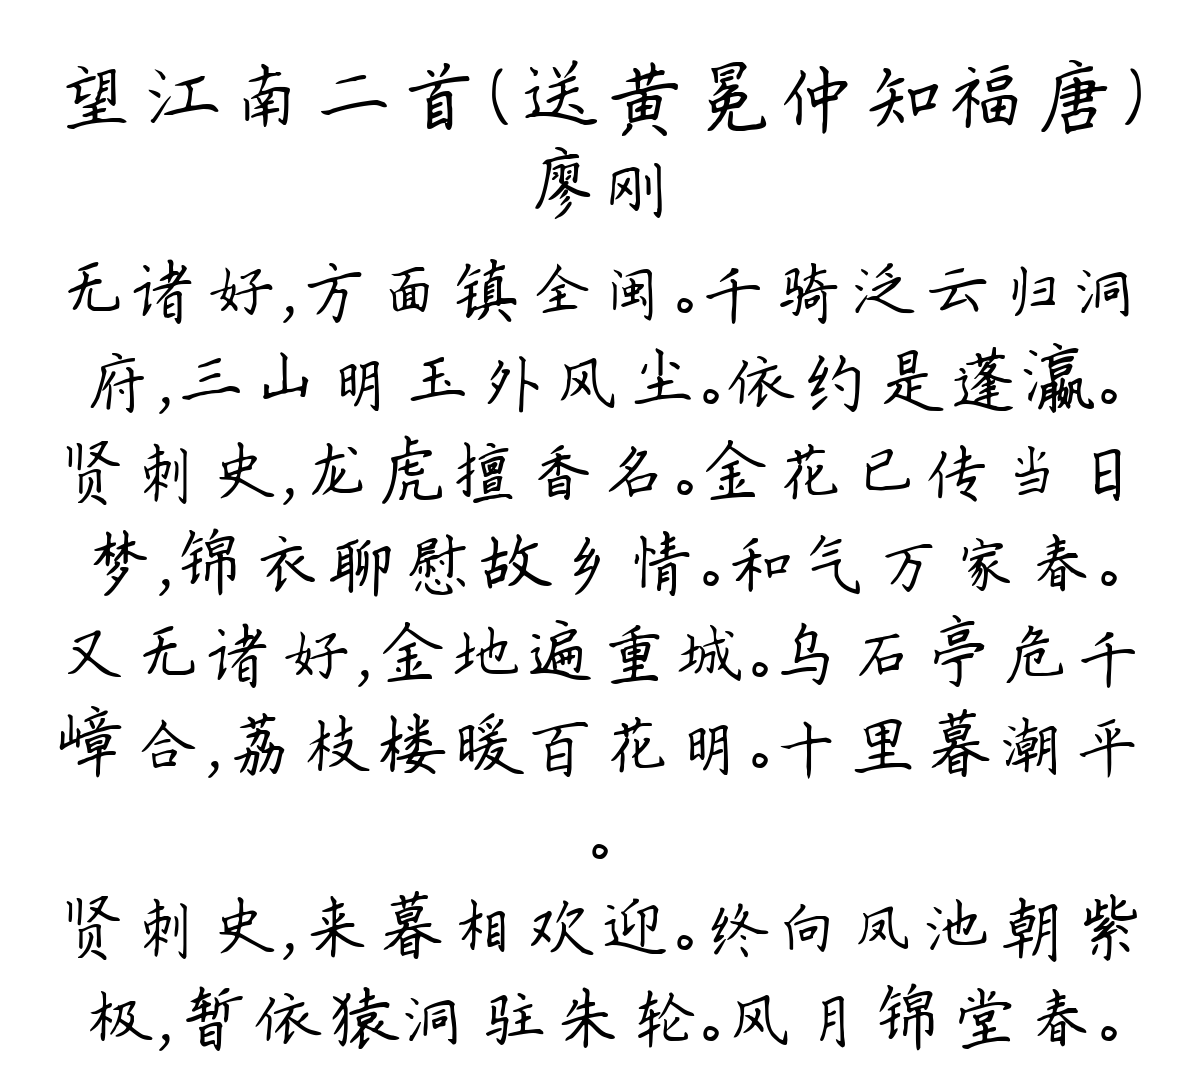 望江南二首(送黄冕仲知福唐)
廖刚
无诸好,方面镇全闽。千骑泛云归洞
府,三山明玉外风尘。依约是蓬瀛。
贤刺史,龙虎擅香名。金花已传当日
梦,锦衣聊慰故乡情。和气万家春。
又无诸好,金地遍重城。乌石亭危千
嶂合,荔枝楼暖百花明。十里暮潮平
。
贤刺史,来暮相欢迎。终向凤池朝紫
极,暂依猿洞驻朱轮。风月锦堂春。